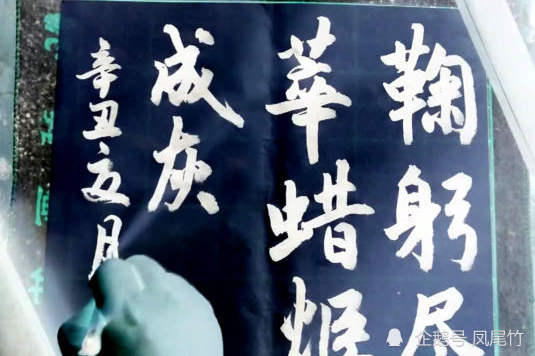 鞠躬尽
華蜡炬
成灰
辛丑亥月
企鹅号 凤尾竹